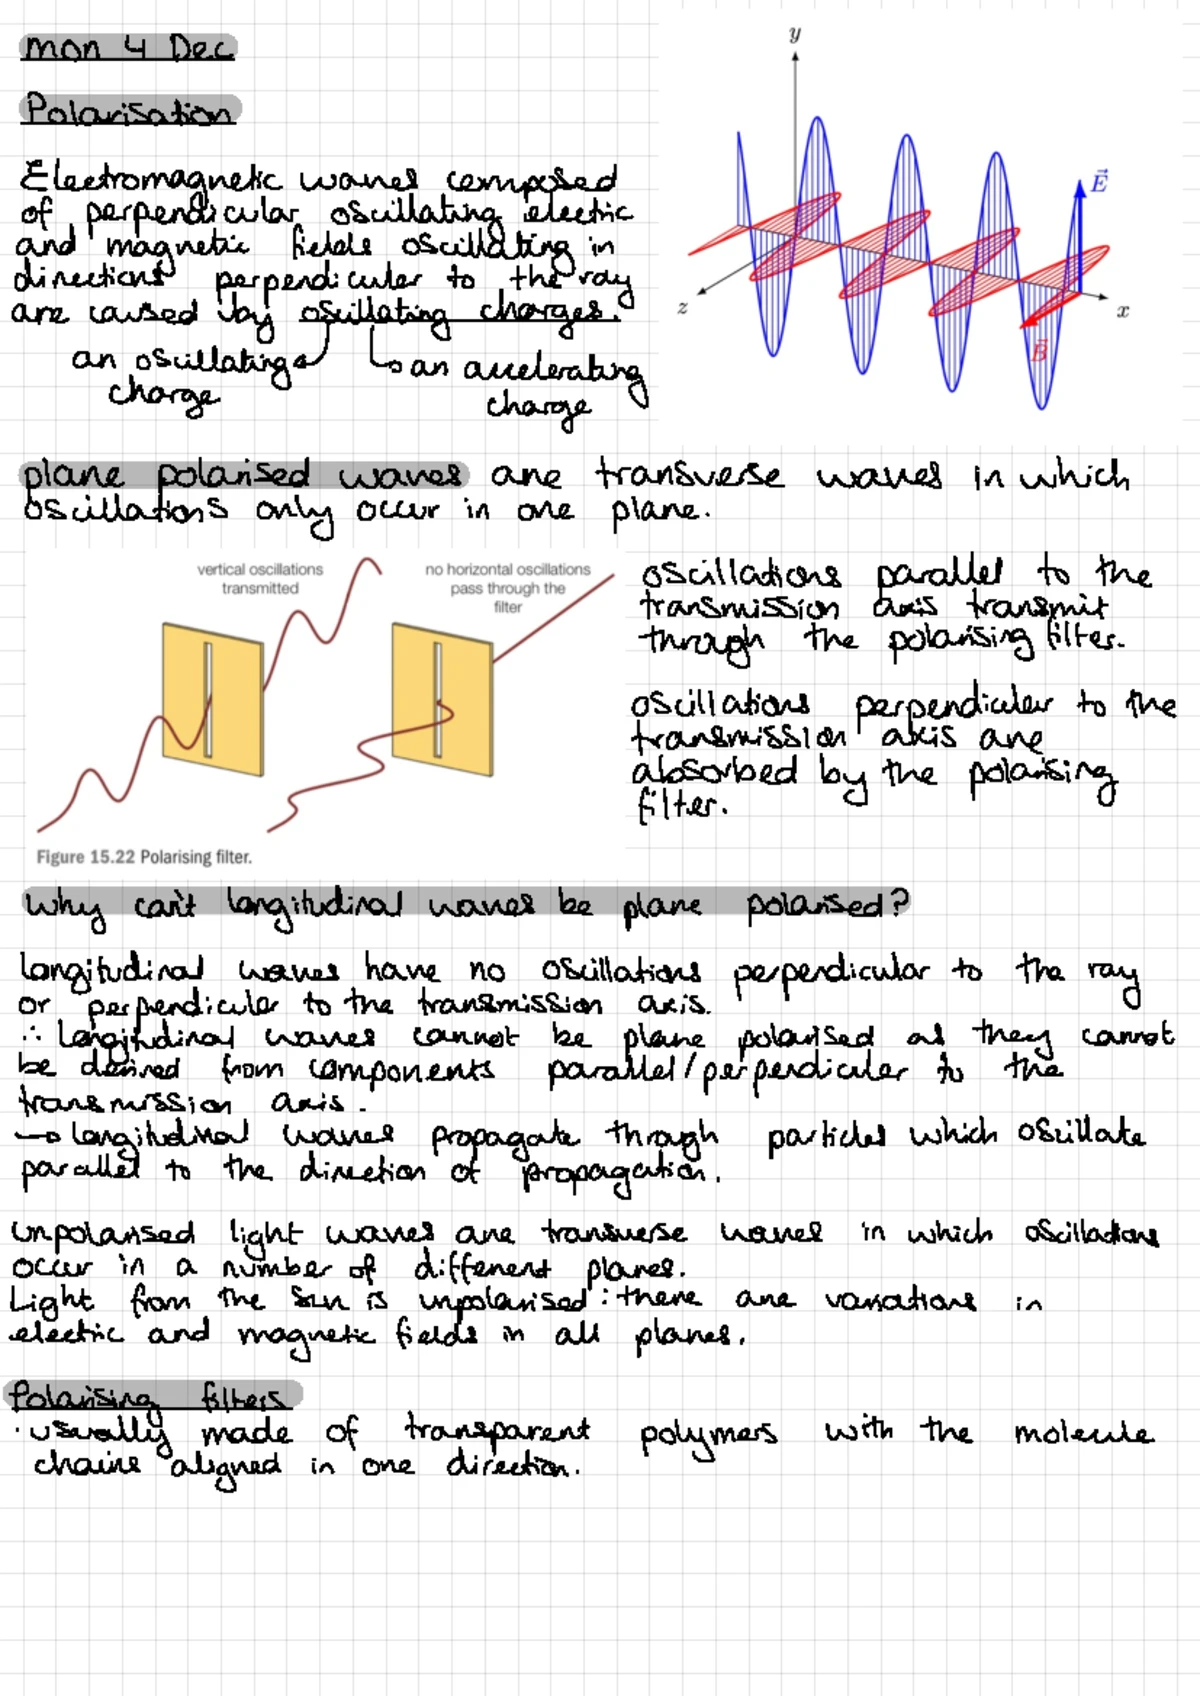 mon 4 Dec
Polarisation
Electromagnetic waves composed
of perpendicular oscillating electric
and magnetic fields oscillating in
directions perpendicular to the ray
are caused by oscillating charges.
an oscillating
charge
an accelerating
charge
y
E
z
x
B
plane polarised waves are transverse waves in which
oscillations only occur in one plane.
vertical oscillations
transmitted
no horizontal oscillations
pass through the
filter
Figure 15.22 Polarising filter.
oscillations parallel to the
transmission axis transmit
through the polarising filter.
oscillations perpendicular to the
transmission axis are
absorbed by the polarising
filter.
Why can't longitudinal waves be plane polarised?
longitudinal waves have no oscillations perpendicular to the ray
or perpendicular to the transmission axis.
∴ longitudinal waves cannot be plane polarised as they cannot
be derived from components parallel/perpendicular to the
transmission axis.
→ longitudinal waves propagate through particles which oscillate
parallel to the direction of propagation.
Unpolarised light waves are transverse waves in which oscillations
occur in a number of different planes.
Light from the Sun is unpolarised: there are variations in
electric and magnetic fields in all planes.
Polarising filters
· usually made of transparent polymers with the molecule
chains aligned in one direction.